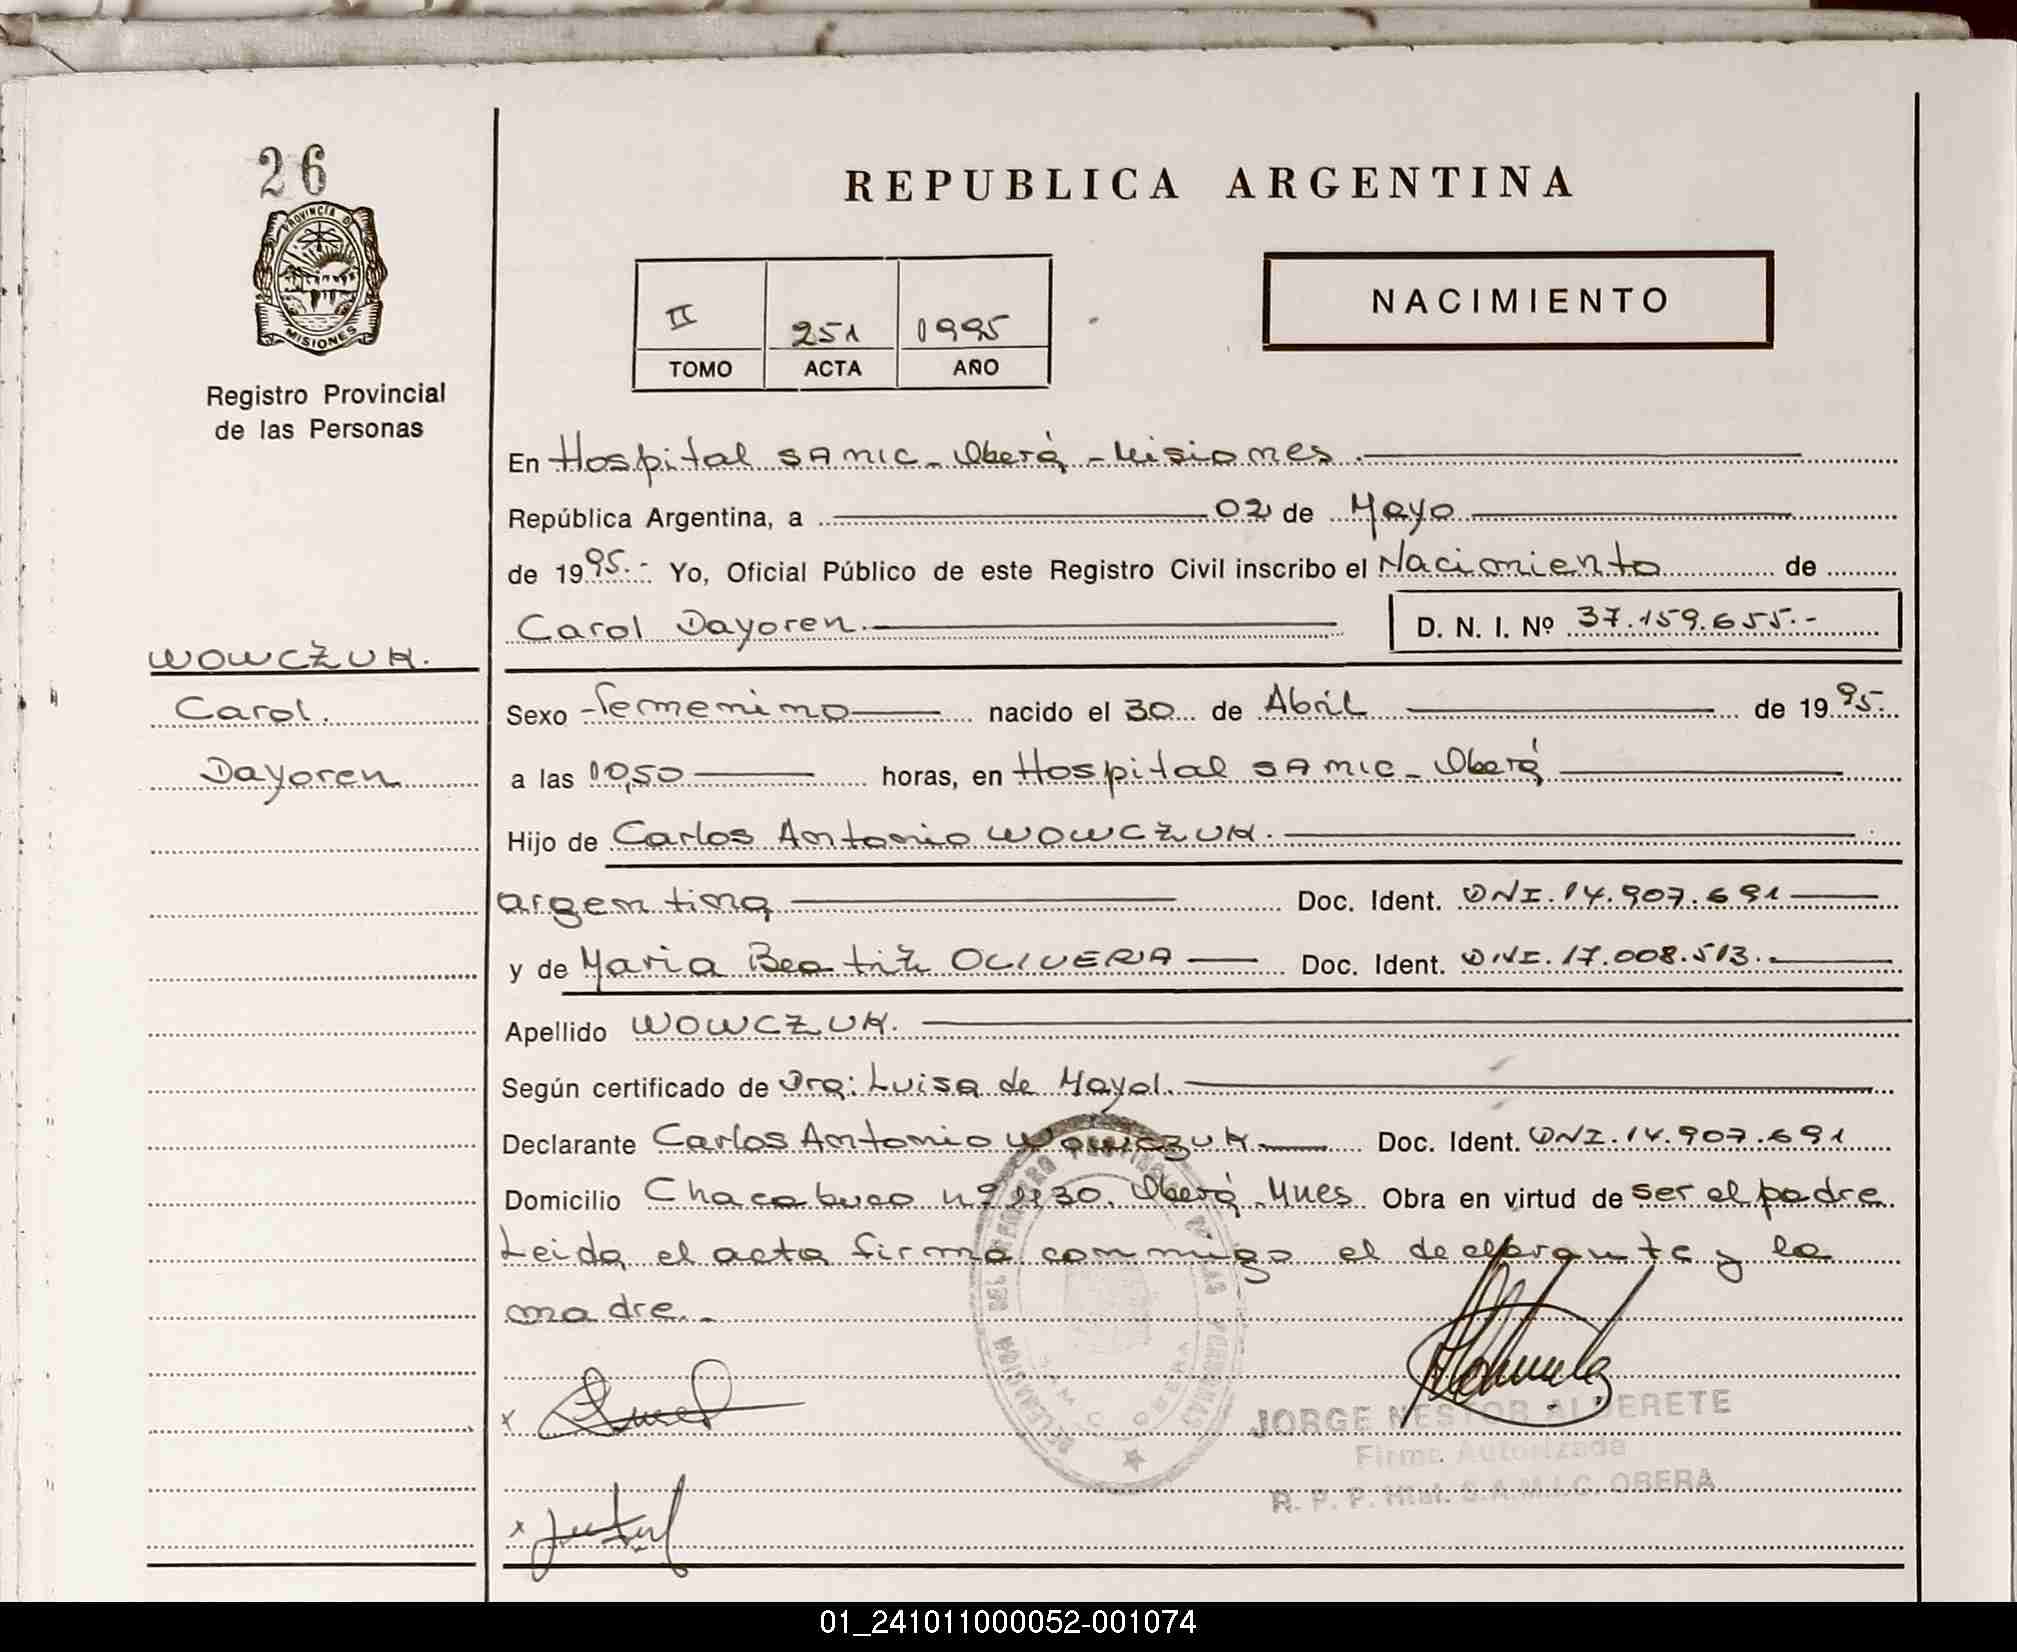 26
PROVINCIA DE
MISIONES
Registro Provincial
de las Personas
WOWCZUK.
Carol.
Dayoren
REPUBLICA ARGENTINA
II 251 1995
TOMO ACTA AÑO
NACIMIENTO
En Hospital SAMIC - Oberá - Misiones.
República Argentina, a 02 de Mayo
de 1995.- Yo, Oficial Público de este Registro Civil inscribo el Nacimiento de
Carol Dayoren. D. N. I. Nº 37.159.655.-
Sexo femenino nacido el 30 de Abril de 1995.
a las 10,50 horas, en Hospital SAMIC - Oberá
Hijo de Carlos Antonio WOWCZUK.
argentina Doc. Ident. DNI. 14.907.691
y de Maria Beatriz OLIVERA Doc. Ident. DNI. 17.008.513.
Apellido WOWCZUK.
Según certificado de Dra: Luisa de Mayol.
Declarante Carlos Antonio Wowczuk. Doc. Ident. DNI. 14.907.691
Domicilio Chacabuco nº 30. Oberá - Mnes Obra en virtud de ser el padre
Leida el acta firma conmigo el declarante y la
madre.-
x
JORGE NESTOR ALDERETE
Firma Autorizada
R. P. P. Htal. S.A.M.I.C. OBERA
x
01_241011000052-001074